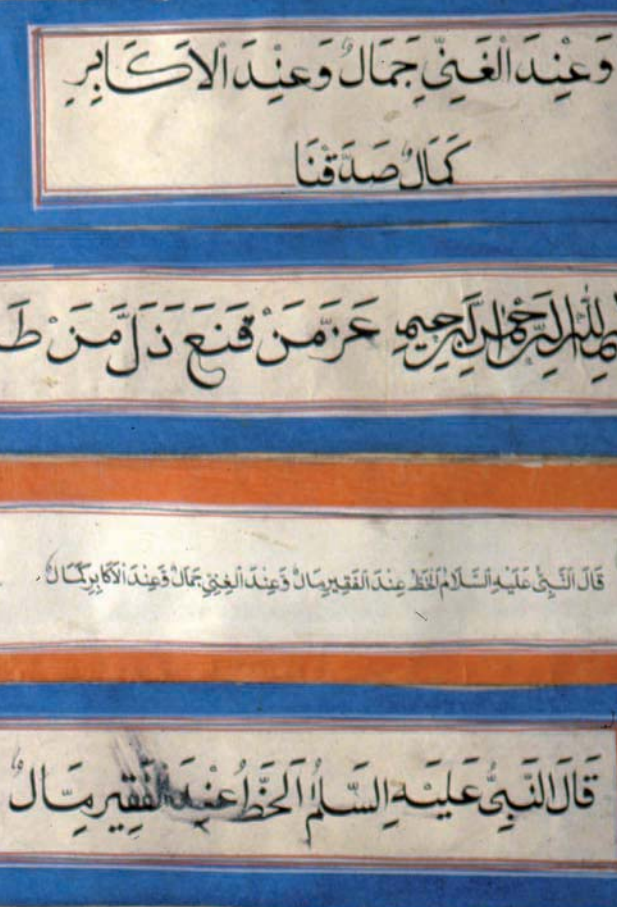 وَعِنْدَ الْغَنِيِّ جَمَالٌ وَعِنْدَ الْاَكَابِرِ
كَمَالٌ صَدَقْنَا
بِسْمِ اللّٰهِ الرَّحْمٰنِ الرَّحِيمِ عَزَّ مَنْ قَنَعَ ذَلَّ مَنْ طَ
قَالَ النَّبِيُّ عَلَيْهِ السَّلَامُ الْخَطُّ عِنْدَ الْفَقِيرِ مَالٌ وَعِنْدَ الْغَنِيِّ جَمَالٌ وَعِنْدَ الْاَكَابِرِ كَمَالٌ
قَالَ النَّبِيُّ عَلَيْهِ السَّلَامُ اَلخَطُّ عِنْدَ الْفَقِيرِ مَالٌ